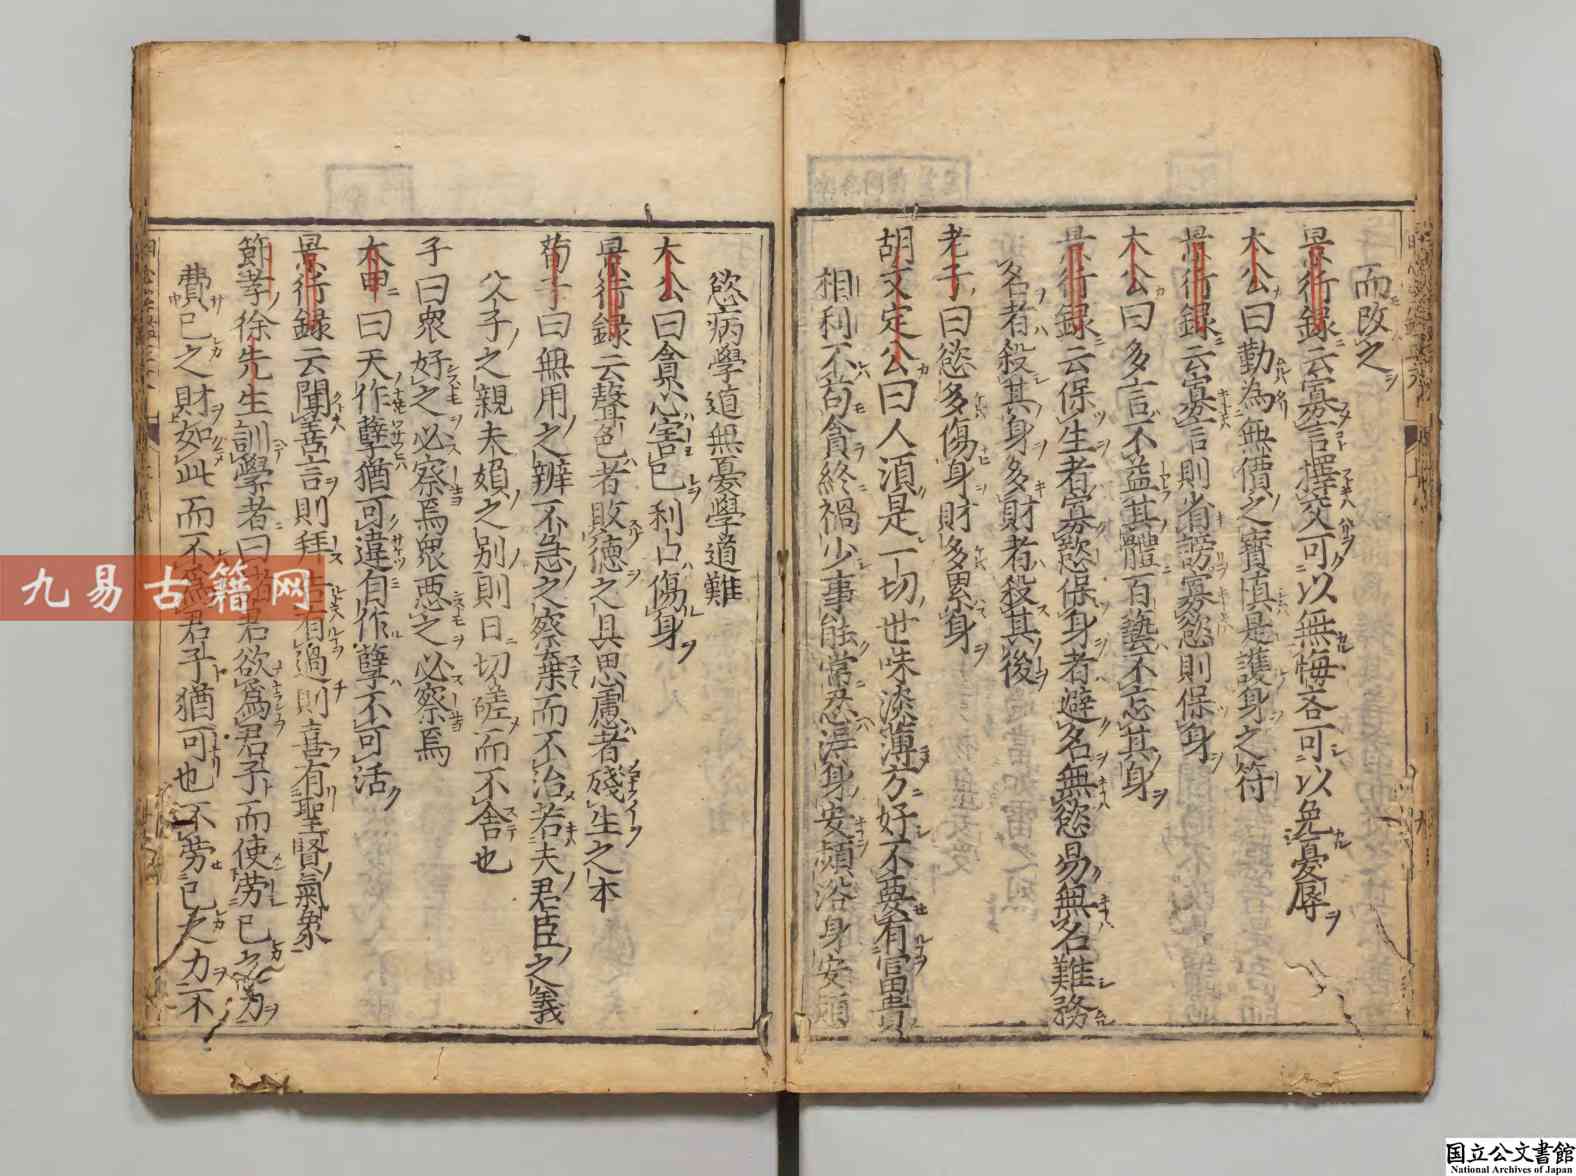 而改之
景行錄云寡言擇交可以無悔吝可以免憂辱
太公曰勤為無價之寶慎是護身之符
景行錄云寡言則省謗寡慾則保身
太公曰多言不益其體百藝不忘其身
景行錄云保生者寡慾保身者避名無慾易無名難務
名者殺其身多財者殺其後
老子曰慾多傷身財多累身
胡文定公曰人須是一切世味淡薄方好不要有富貴
相利不苟貪終禍少事能常忍得身安頻浴身安頻
慾病學道無憂學道難
太公曰貪心害己利口傷身
景行錄云聲色者敗德之具思慮者殘生之本
荀子曰無用之辯不急之察棄而不治若夫君臣之義
父子之親夫婦之别則日切磋而不舍也
子曰衆好之必察焉衆惡之必察焉
太甲曰天作孽猶可違自作孽不可活
景行錄云聞善言則拜告有過則喜有聖賢氣象
節孝徐先生訓學者曰諸君欲爲君子而使勞己之力
費己之財如此而不爲君子猶可也不勞己之力不
九易古籍网
国立公文書館
National Archives of Japan